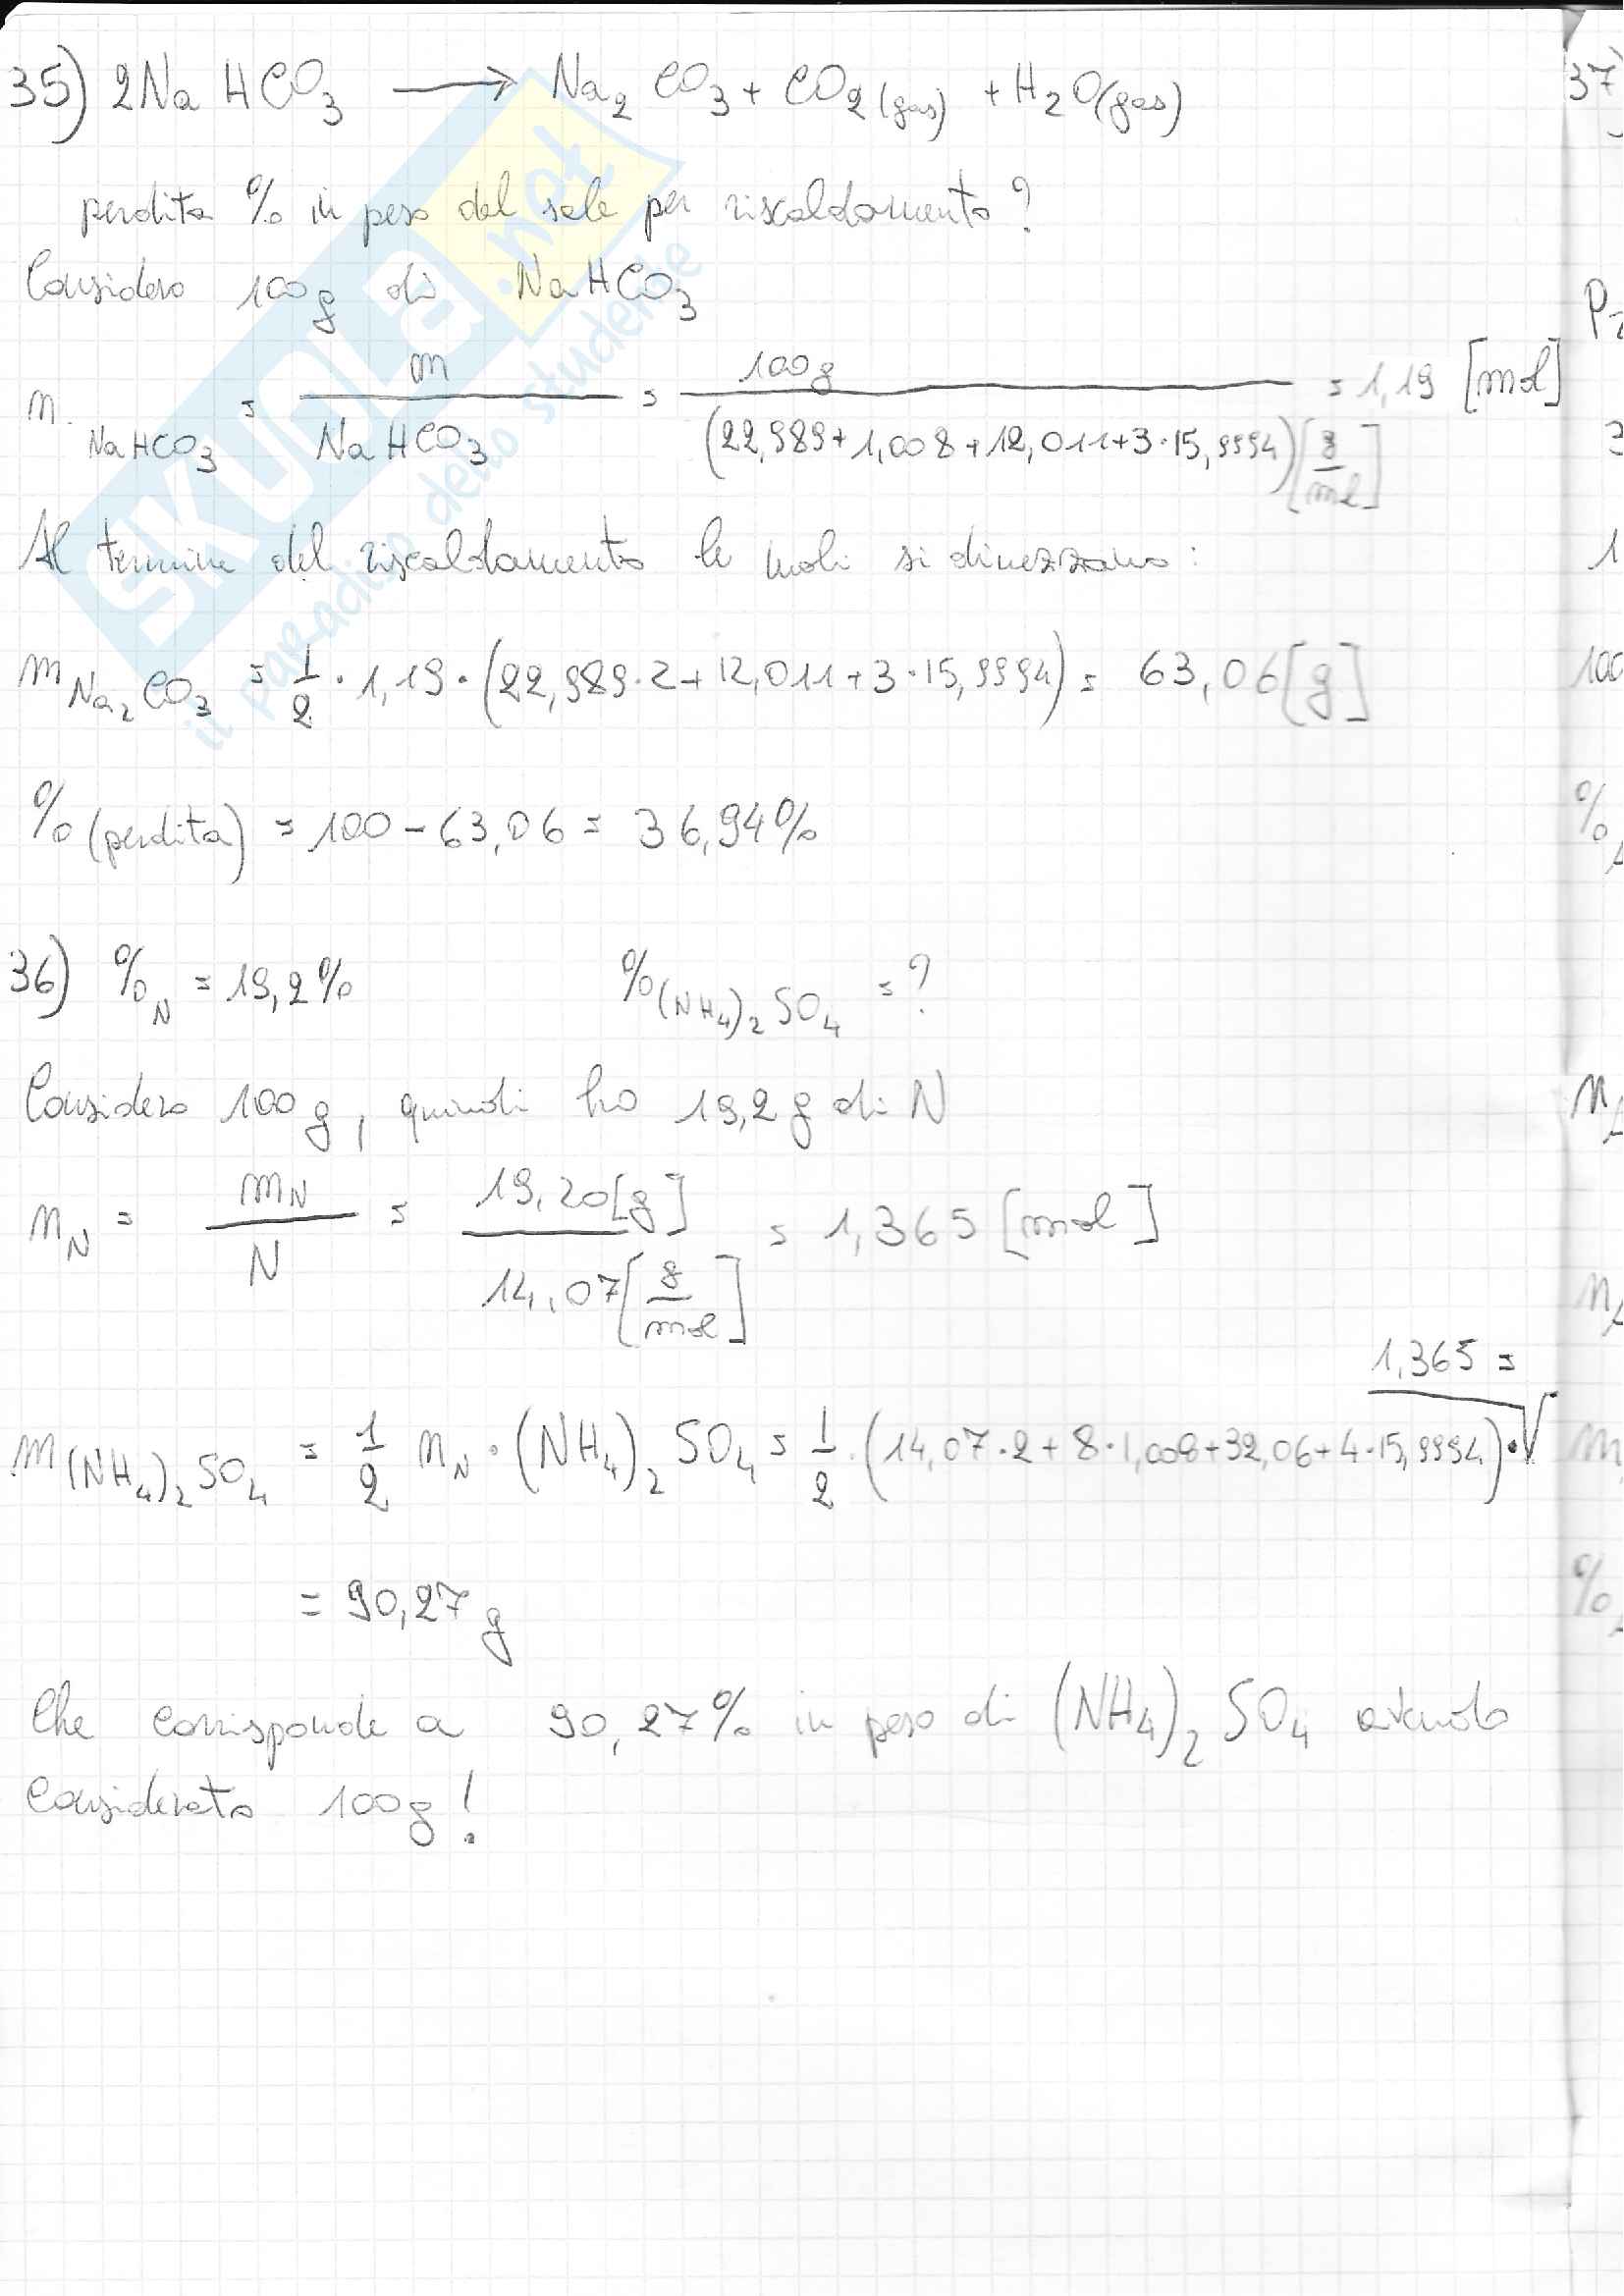 35) 2NaHCO₃ ⟶ Na₂CO₃ + CO₂(gas) + H₂O(gas)
perdita % in peso del sale per riscaldamento?
Considero 100g di NaHCO₃
n NaHCO₃ = m / NaHCO₃ = 100g / (22,989+1,008+12,011+3·15,9994)[g/mol] = 1,19 [mol]
Al termine del riscaldamento le moli si dimezzano:
m Na₂CO₃ = 1/2 · 1,19 · (22,989·2+12,011+3·15,9994) = 63,06 [g]
% (perdita) = 100 - 63,06 = 36,94%
36) %N = 19,2% %(NH₄)₂SO₄ = ?
Considero 100g, quindi ho 19,2g di N
n N = m N / N = 19,20[g] / 14,07[g/mol] = 1,365 [mol]
m (NH₄)₂SO₄ = 1/2 n N · (NH₄)₂SO₄ = 1/2 · (14,07·2+8·1,008+32,06+4·15,9994) · 1,365 =
= 90,27 g
Che corrisponde a 90,27% in peso di (NH₄)₂SO₄ avendo
considerato 100g!
37
SKUOLA.net
il paradiso dello studente